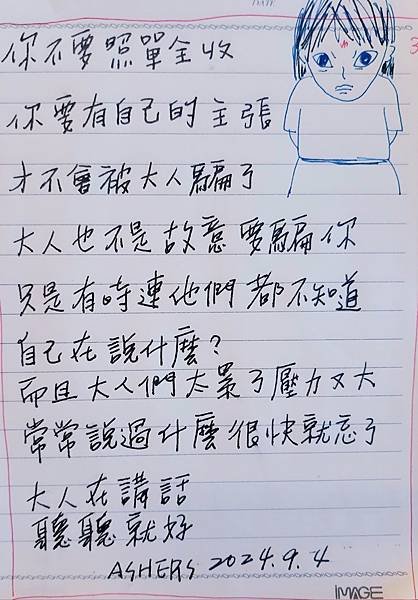 你不要照單全收
你要有自己的主張
才不會被大人騙了
大人也不是故意要騙你
只是有時連他們都不知道
自己在說什麼?
而且大人們太累了壓力又大
常常說過什麼很快就忘了
大人在講話
聽聽就好
ASHERS 2024.9.4
IMAGE